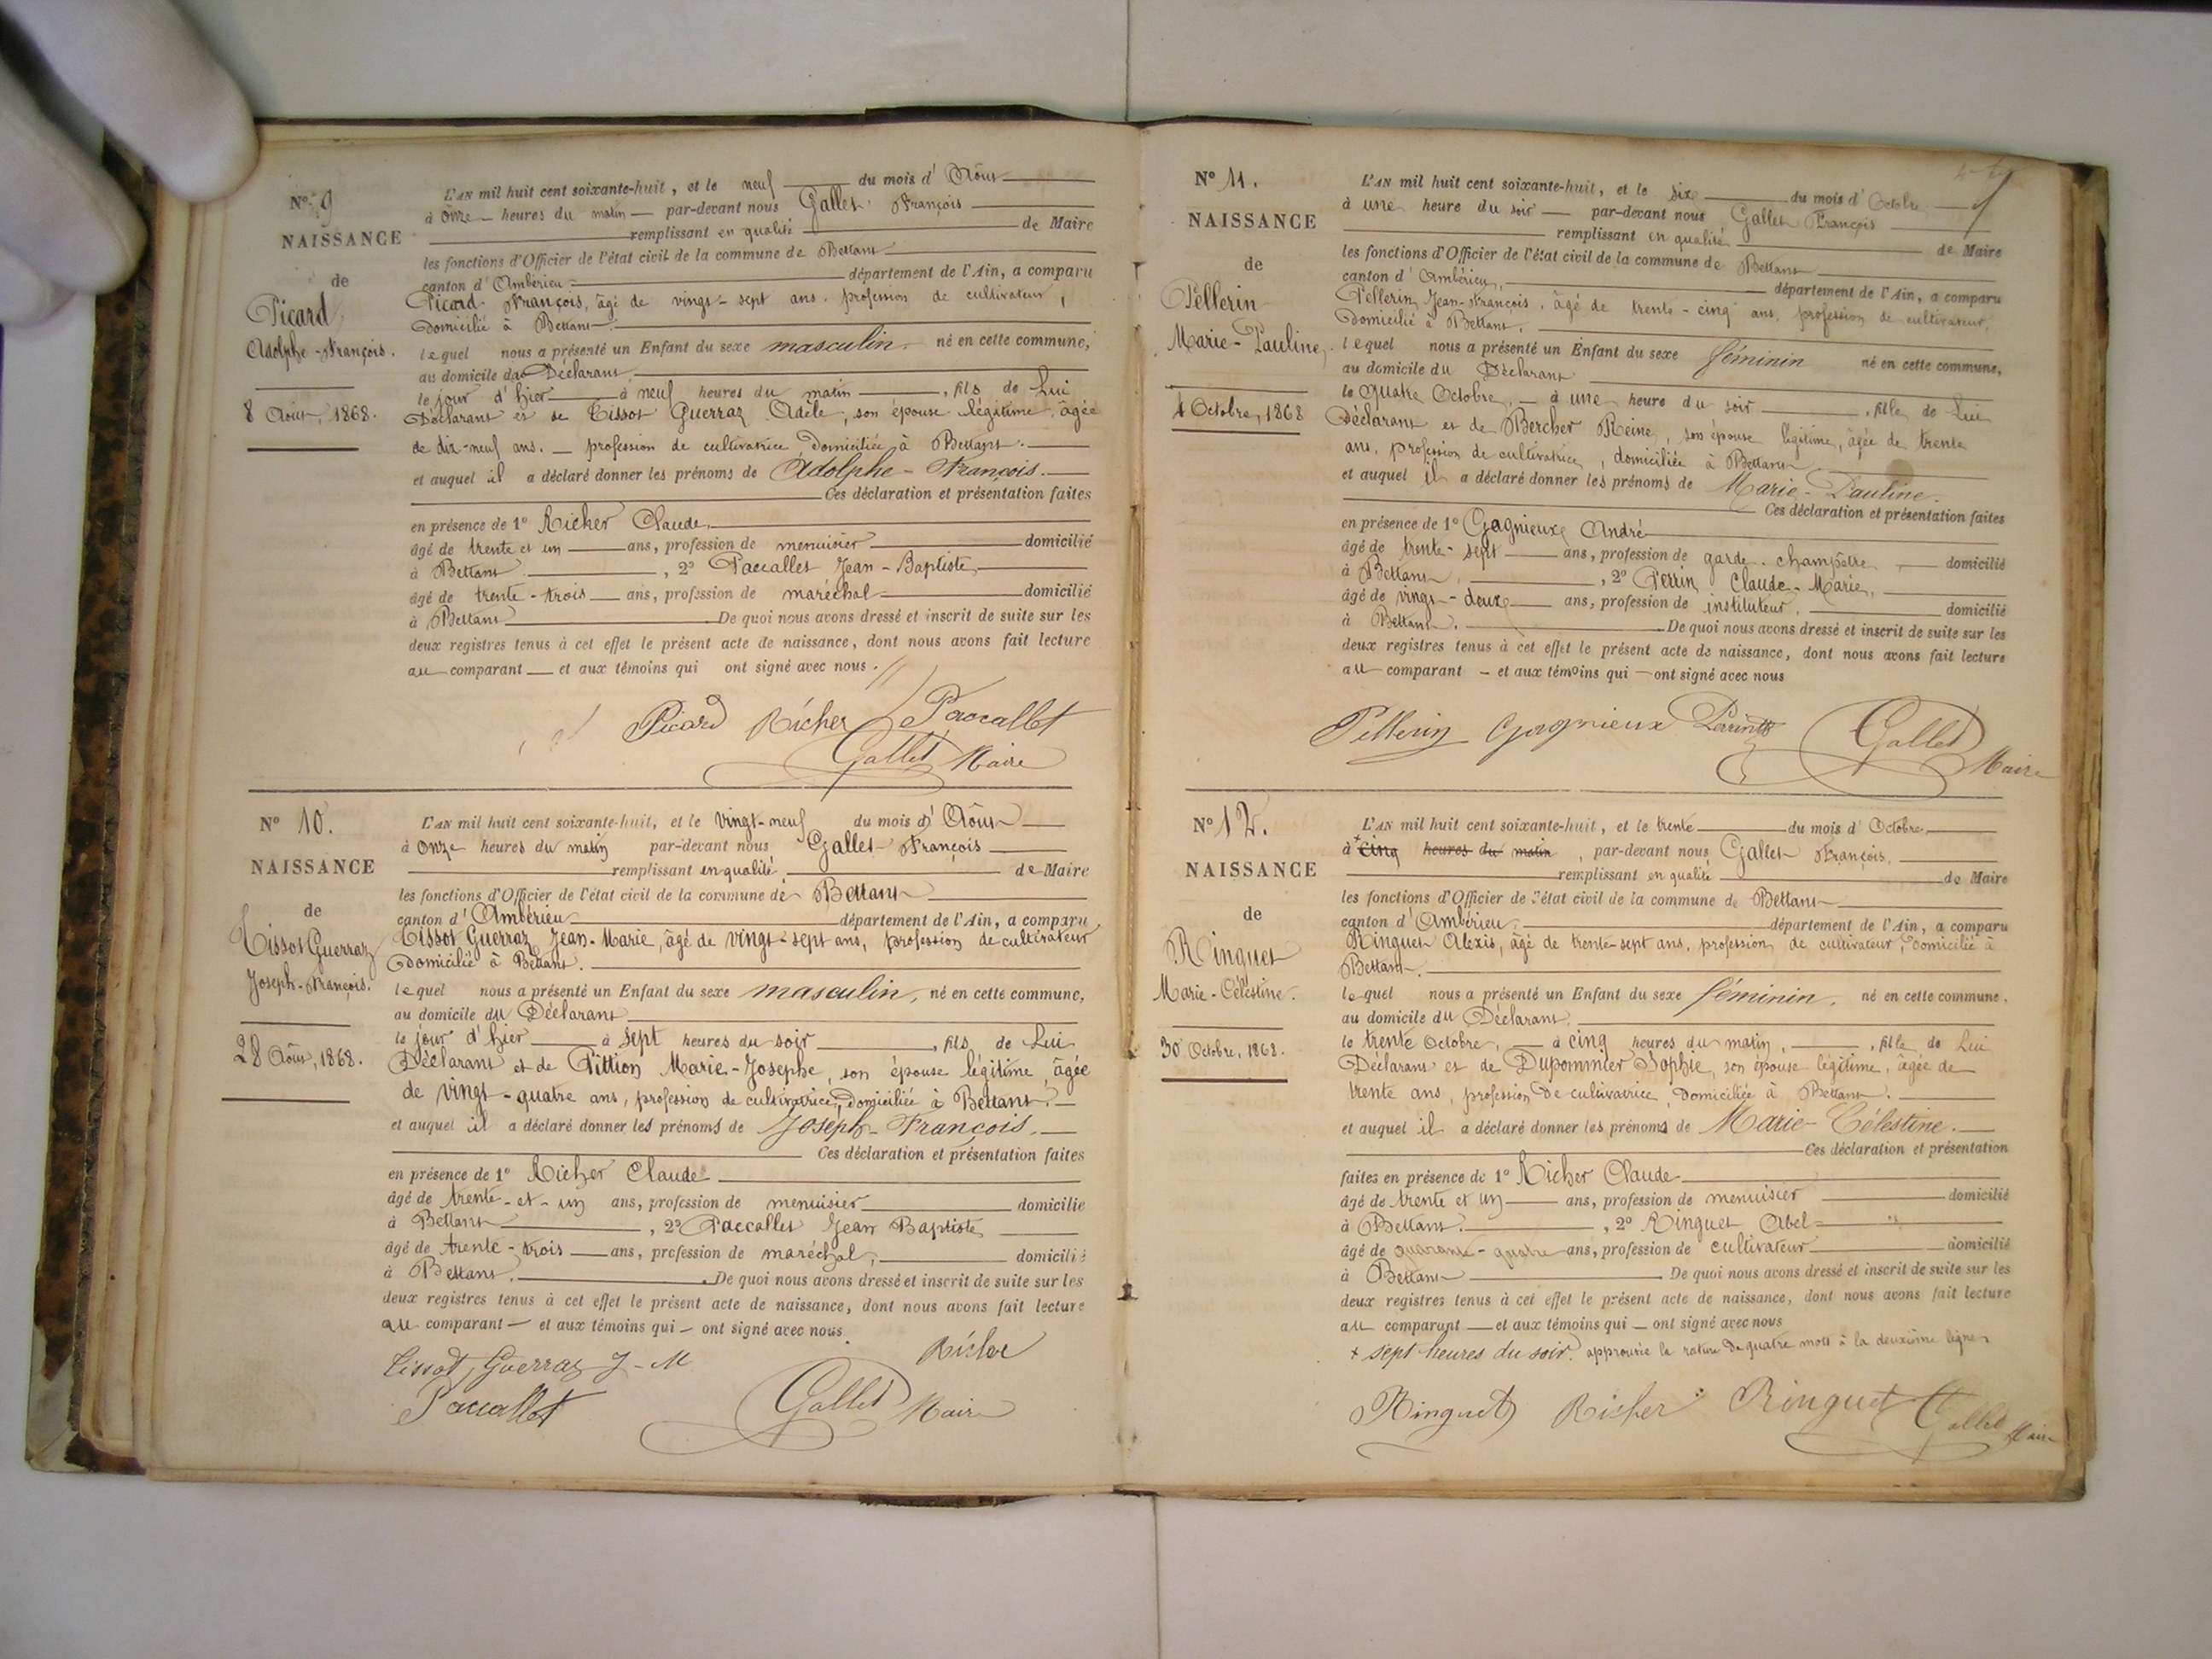 N° 9
NAISSANCE
de
Picard
Adolphe-François.
8 Août, 1868.
L'AN mil huit cent soixante-huit, et le neuf du mois d'Août
à onze heures du matin par-devant nous Gallet François
remplissant en qualité de Maire
les fonctions d'Officier de l'état civil de la commune de Bettant
canton d'Ambérieu département de l'Ain, a comparu
Picard François, âgé de vingt-sept ans, profession de cultivateur,
domicilié à Bettant.
lequel nous a présenté un Enfant du sexe masculin, né en cette commune,
au domicile du Déclarant,
le jour d'hier à neuf heures du matin, fils de Lui
Déclarant et de Tissot Guerraz Adèle, son épouse légitime, âgée
de dix-neuf ans. profession de cultivatrice domiciliée à Bettant.
et auquel il a déclaré donner les prénoms de Adolphe-François.
Ces déclaration et présentation faites
en présence de 1° Richer Claude,
âgé de trente et un ans, profession de menuisier domicilié
à Bettant, 2° Paccallet Jean-Baptiste,
âgé de trente-trois ans, profession de maréchal domicilié
à Bettant De quoi nous avons dressé et inscrit de suite sur les
deux registres tenus à cet effet le présent acte de naissance, dont nous avons fait lecture
au comparant et aux témoins qui ont signé avec nous.
Picard Richer Paccallet
Gallet Maire
N° 10.
NAISSANCE
de
Tissot Guerraz
Joseph-François.
28 Août, 1868.
L'AN mil huit cent soixante-huit, et le vingt-neuf du mois d'Août
à onze heures du matin par-devant nous Gallet François
remplissant en qualité de Maire
les fonctions d'Officier de l'état civil de la commune de Bettant
canton d'Ambérieu département de l'Ain, a comparu
Tissot Guerraz Jean-Marie, âgé de vingt-sept ans, profession de cultivateur
domicilié à Bettant.
lequel nous a présenté un Enfant du sexe masculin, né en cette commune,
au domicile du Déclarant
le jour d'hier à sept heures du soir, fils de Lui
Déclarant et de Pittion Marie-Josephe, son épouse légitime, âgée
de vingt-quatre ans, profession de cultivatrice, domiciliée à Bettant.
et auquel il a déclaré donner les prénoms de Joseph-François.
Ces déclaration et présentation faites
en présence de 1° Richer Claude
âgé de trente-et-un ans, profession de menuisier domicilié
à Bettant, 2° Paccallet Jean Baptiste
âgé de trente-trois ans, profession de maréchal, domicilié
à Bettant. De quoi nous avons dressé et inscrit de suite sur les
deux registres tenus à cet effet le présent acte de naissance, dont nous avons fait lecture
au comparant et aux témoins qui ont signé avec nous.
Tissot Guerraz J-M Richer
Paccallet Gallet Maire
N° 11.
NAISSANCE
de
Pellerin
Marie-Pauline,
4 Octobre, 1868
L'AN mil huit cent soixante-huit, et le six du mois d'Octobre
à une heure du soir par-devant nous Gallet François
remplissant en qualité de Maire
les fonctions d'Officier de l'état civil de la commune de Bettant
canton d'Ambérieu, département de l'Ain, a comparu
Pellerin Jean-François, âgé de trente-cinq ans, profession de cultivateur,
domicilié à Bettant,
lequel nous a présenté un Enfant du sexe féminin né en cette commune,
au domicile du Déclarant
le quatre Octobre, à une heure du soir, fille de Lui
Déclarant et de Bercher Reine, son épouse légitime, âgée de trente
ans, profession de cultivatrice, domiciliée à Bettant
et auquel il a déclaré donner les prénoms de Marie-Pauline.
Ces déclaration et présentation faites
en présence de 1° Gagnieux André
âgé de trente-sept ans, profession de garde-champêtre domicilié
à Bettant, 2° Perrin Claude-Marie,
âgé de vingt-deux ans, profession de instituteur, domicilié
à Bettant. De quoi nous avons dressé et inscrit de suite sur les
deux registres tenus à cet effet le présent acte de naissance, dont nous avons fait lecture
au comparant et aux témoins qui ont signé avec nous
Pellerin Gagnieux Perrin Gallet
Maire
N° 12.
NAISSANCE
de
Ringuet
Marie-Célestine.
30 Octobre, 1868.
L'AN mil huit cent soixante-huit, et le trente du mois d'Octobre
à + cinq heures du matin, par-devant nous Gallet François,
remplissant en qualité de Maire
les fonctions d'Officier de l'état civil de la commune de Bettant
canton d'Ambérieu, département de l'Ain, a comparu
Ringuet Alexis, âgé de trente-sept ans, profession de cultivateur, domicilié à
Bettant.
lequel nous a présenté un Enfant du sexe féminin, né en cette commune,
au domicile du Déclarant
le trente Octobre, à cinq heures du matin, fille de Lui
Déclarant et de Dupommier Sophie, son épouse légitime, âgée de
trente ans, profession de cultivatrice, domiciliée à Bettant.
et auquel il a déclaré donner les prénoms de Marie-Célestine.
Ces déclaration et présentation
faites en présence de 1° Richer Claude
âgé de trente et un ans, profession de menuisier domicilié
à Bettant. 2° Ringuet Abel
âgé de quarante-quatre ans, profession de cultivateur domicilié
à Bettant De quoi nous avons dressé et inscrit de suite sur les
deux registres tenus à cet effet le présent acte de naissance, dont nous avons fait lecture
au comparant et aux témoins qui ont signé avec nous
+ sept heures du soir. approuvée la rature de quatre mots à la deuxième ligne
Ringuet Richer Ringuet Gallet Maire